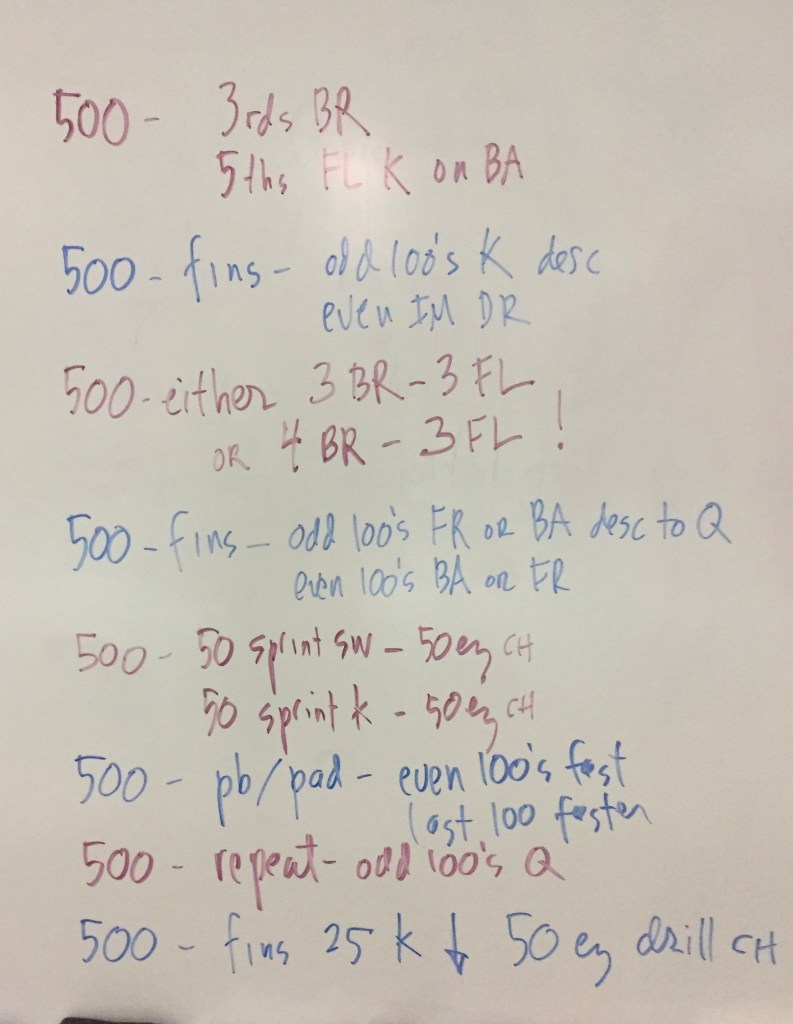 500 - 3rds BR
5ths FL K on BA
500 - fins - odd 100's K desc
even IM DR
500 - either 3 BR - 3 FL
OR 4 BR - 3 FL !
500 - fins - odd 100's FR OR BA desc to Q
even 100's BA or FR
500 - 50 sprint sw - 50 ez CH
50 sprint k - 50 ez CH
500 - pb/pad - even 100's fast
last 100 faster
500 - repeat - odd 100's Q
500 - fins 25 k ↓ 50 ez drill CH